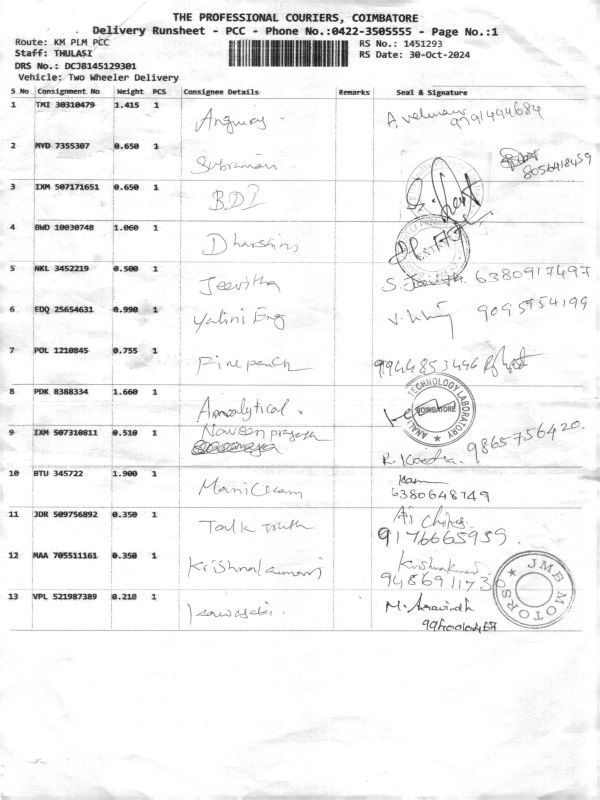 THE PROFESSIONAL COURIERS, COIMBATORE
Delivery Runsheet - PCC - Phone No.:0422-3505555 - Page No.:1
Route: KM PLM PCC RS No.: 1451293
Staff: THULASI RS Date: 30-Oct-2024
DRS No.: DCJ8145129301
Vehicle: Two Wheeler Delivery
S No Consignment No Weight PCS Consignee Details Remarks Seal & Signature
1 TMI 30310479 1.415 1 9791444684
2 MYD 7355307 0.650 1 Subraman 8056418459
3 IXM 507171651 0.650 1 BDI
4 BWD 10030748 1.060 1 Dharshins
5 NKL 3452219 0.500 1 Jeevitha 6380917497
6 EDQ 25654631 0.990 1 Yalini Eng 9095954199
7 POL 1210845 0.755 1 Pinepench 9944853446
8 PDK 8388334 1.660 1 Analytical. ANALYTICAL TECHNOLOGY LABORATORY COIMBATORE
9 IXM 507310811 0.510 1 Naveen prayash 9865756420.
10 BTU 345722 1.900 1 Manickam 6380648749
11 JDR 509756892 0.350 1 Talk Truth 9176665959.
12 MAA 705511161 0.350 1 Krishnakumari Krishnakumari 948691173 JMB MOTORS
13 VPL 521987389 0.210 1 M. Aravindh